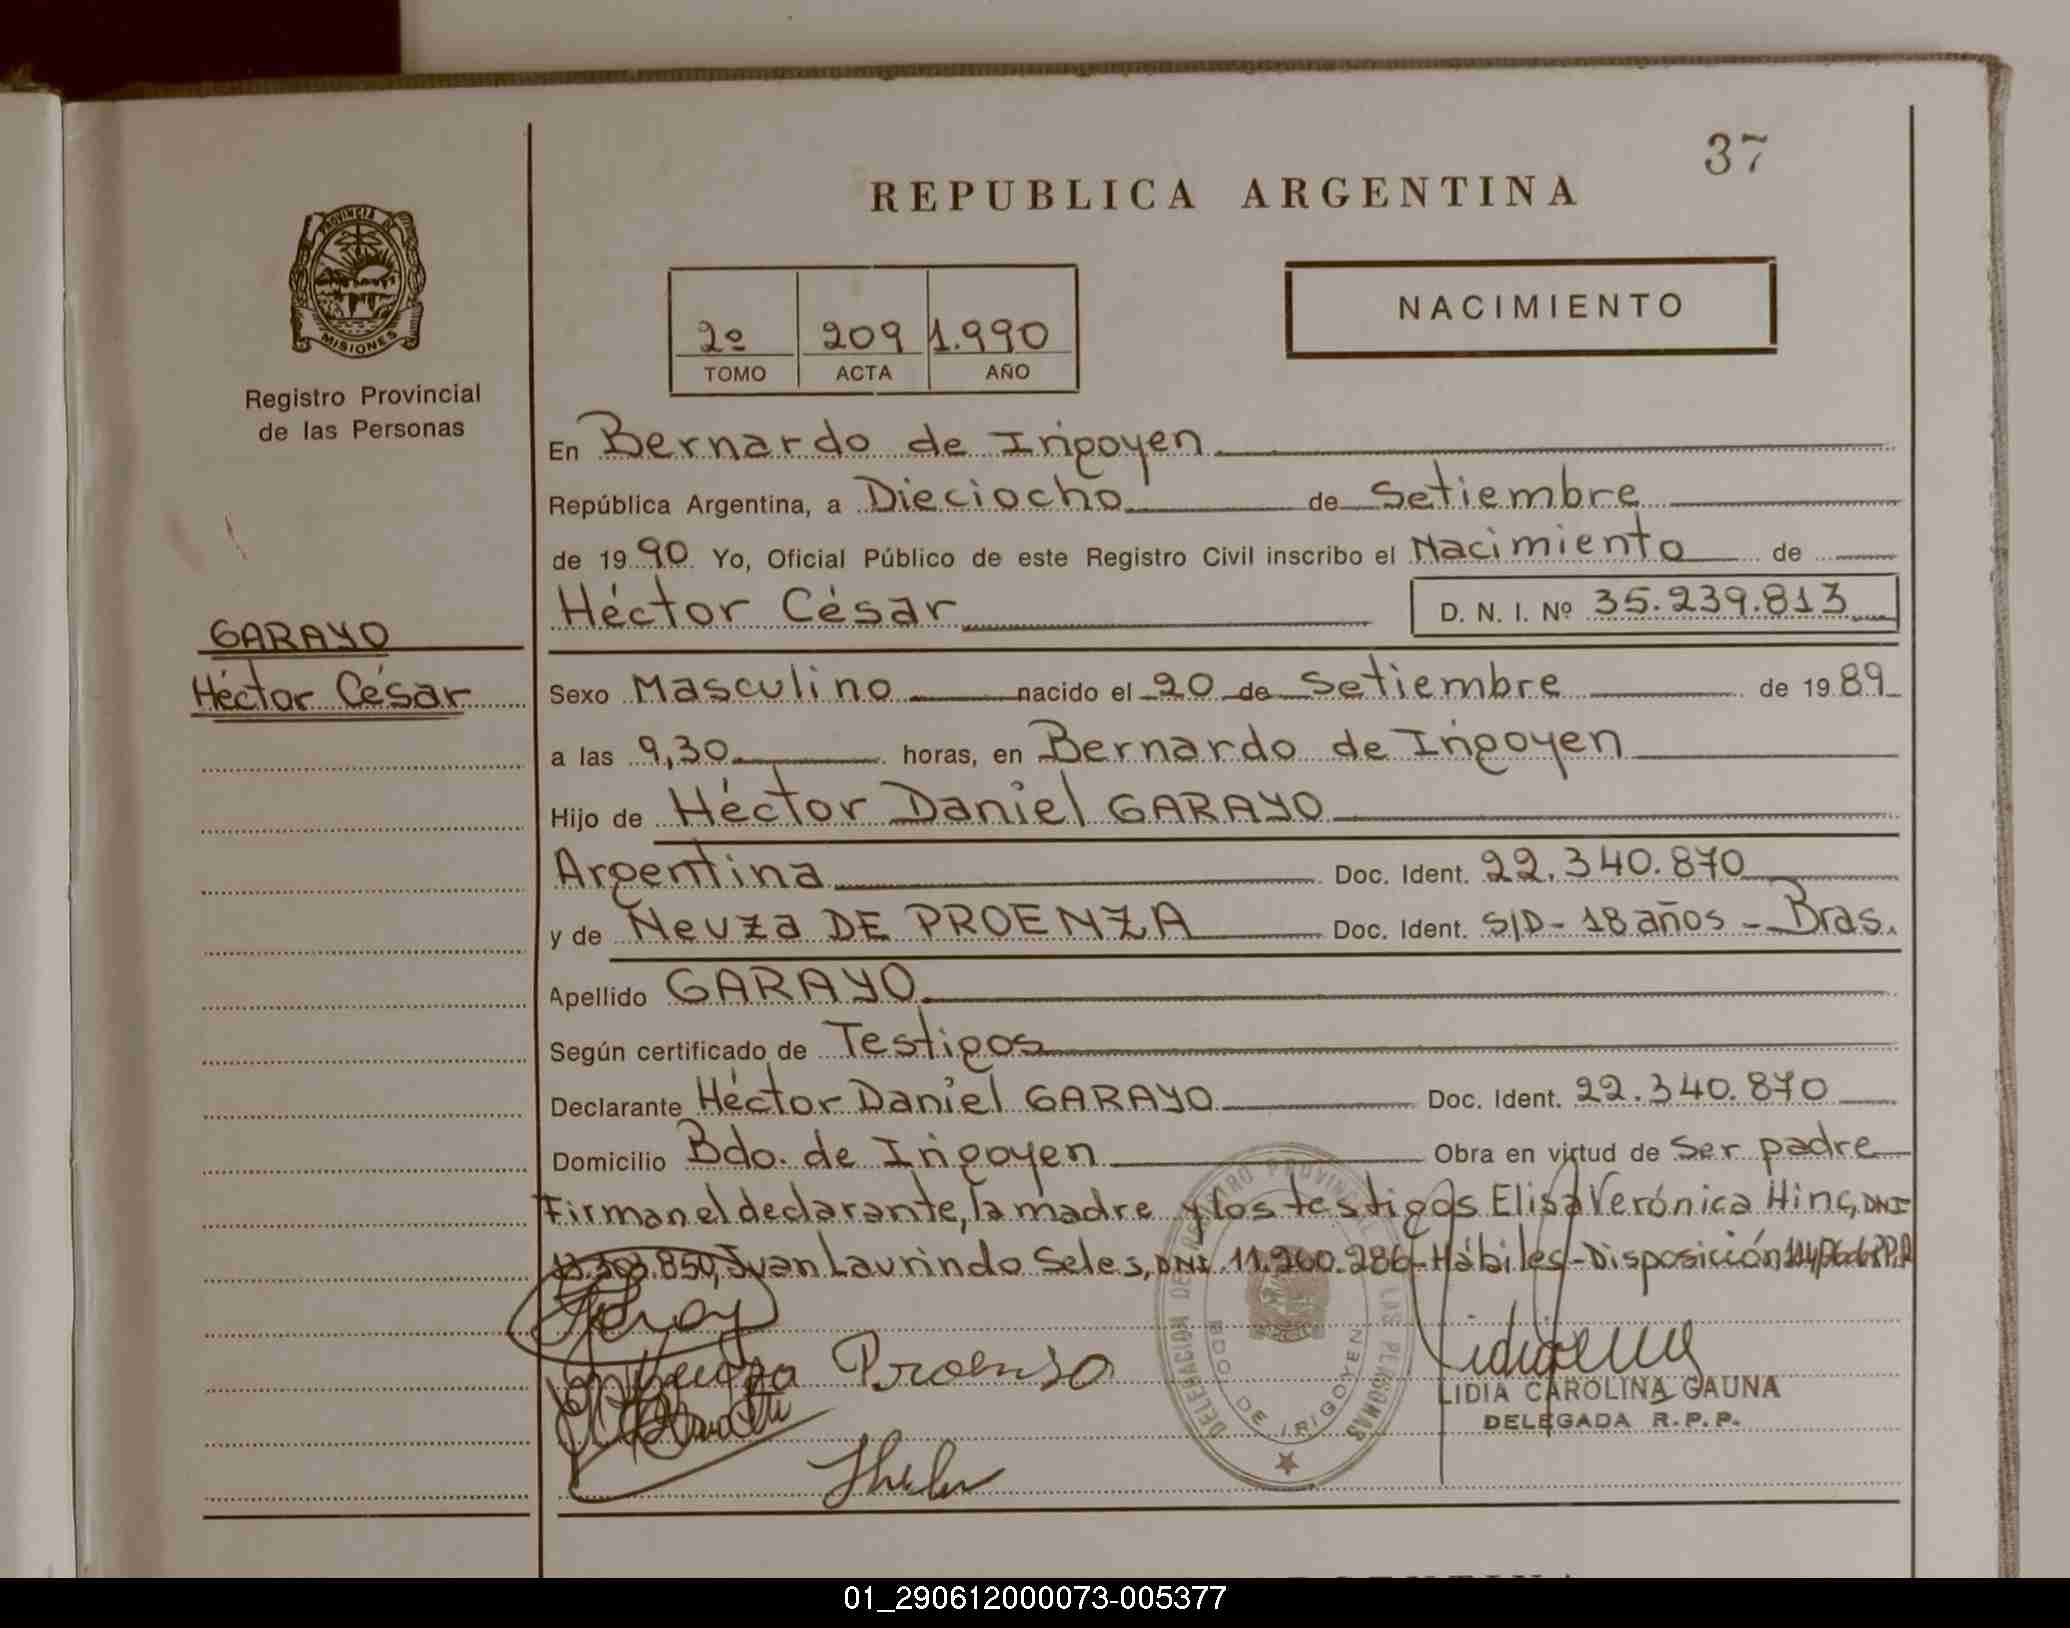 37
REPUBLICA ARGENTINA
PROVINCIA DE
MISIONES
Registro Provincial
de las Personas
NACIMIENTO
2º 209 1.990
TOMO ACTA AÑO
En Bernardo de Irigoyen
República Argentina, a Dieciocho de Setiembre
de 1990 Yo, Oficial Público de este Registro Civil inscribo el Nacimiento de
Héctor César D. N. I. Nº 35.239.813
GARAYO
Héctor César
Sexo Masculino nacido el 20 de Setiembre de 1989
a las 9,30 horas, en Bernardo de Irigoyen
Hijo de Héctor Daniel GARAYO
Argentina Doc. Ident. 22.340.870
y de Neuza DE PROENZA Doc. Ident. S/D - 18 años - Bras.
Apellido GARAYO
Según certificado de Testigos
Declarante Héctor Daniel GARAYO Doc. Ident. 22.340.870
Domicilio Bdo. de Irigoyen Obra en virtud de Ser padre
Firman el declarante, la madre y los testigos Elisa Verónica Hinc, DNI
Juan Laurindo Seles, DNI 11.260.286 - Hábiles - Disposición
Neuza Proenso
DELEGACION DEL REGISTRO PROVINCIAL DE LAS PERSONAS
BDO. DE IRIGOYEN
LIDIA CAROLINA GAUNA
DELEGADA R.P.P.
01_290612000073-005377